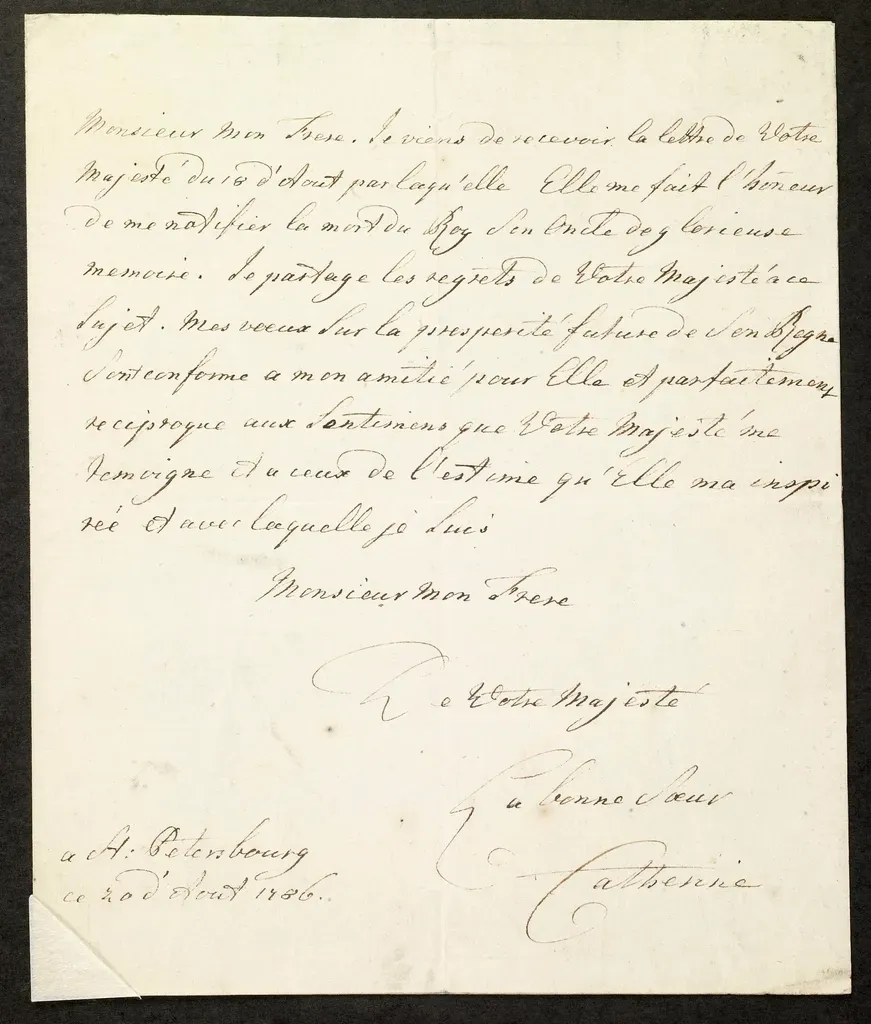 Monsieur mon Frere. Je viens de recevoir la lettre de Votre
Majesté du 18 d'Aout par laqu'elle Elle me fait l'hoñeur
de me notifier la mort du Roy Son Oncle de glorieuse
memoire. Je partage les regrets de Votre Majesté a ce
Sujet. Mes vœux Sur la prosperité future de Son Regne
Sont conforme a mon amitié pour Elle et parfaitement
reciproque aux Sentimens que Votre Majesté me
temoigne et a ceux de l'estime qu'Elle ma inspi
reé et avec laquelle je Suis
Monsieur mon Frere
De Votre Majesté
La bonne Sœur
Catherine
a St: Petersbourg
ce 20 d'Aout 1786.